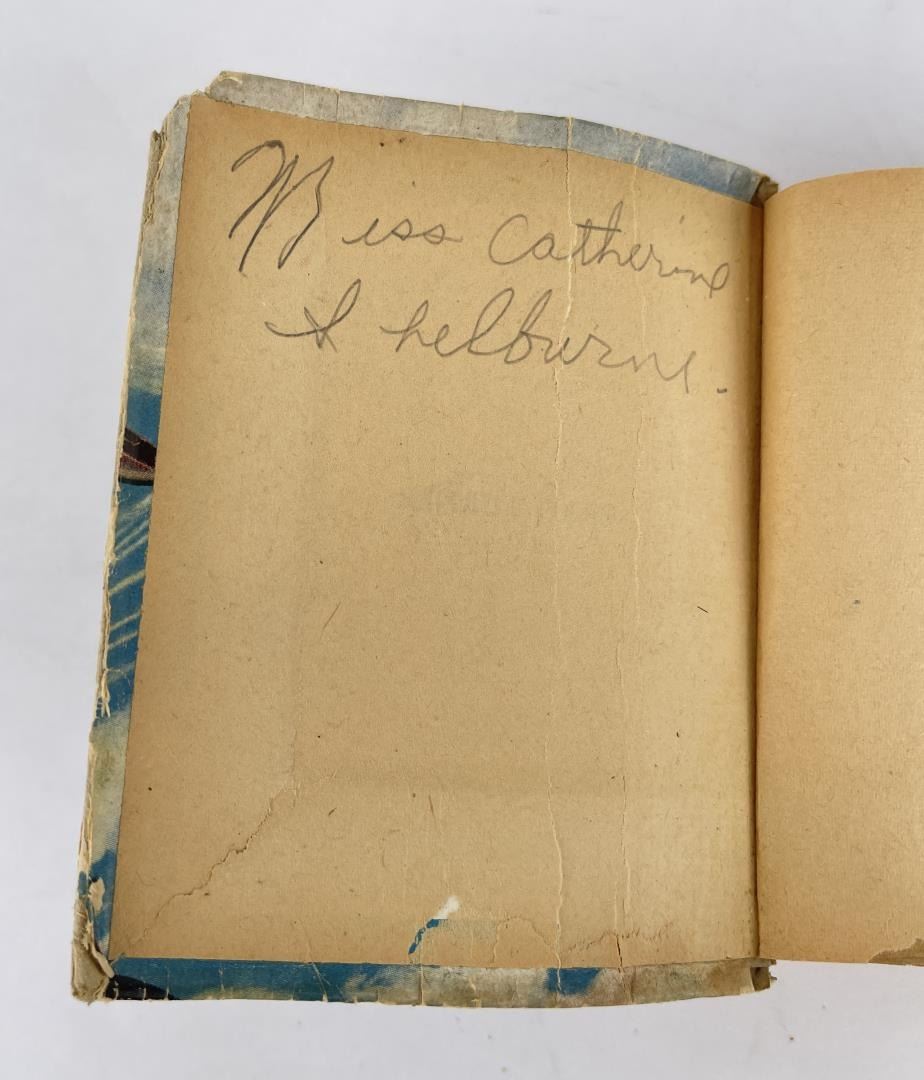 Miss Catherine
Shelburne.